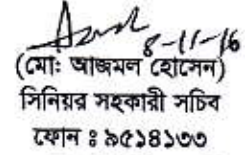 8-11-16
(মোঃ আজমল হোসেন)
সিনিয়র সহকারী সচিব
ফোন ঃ ৯৫১৪১৩৩